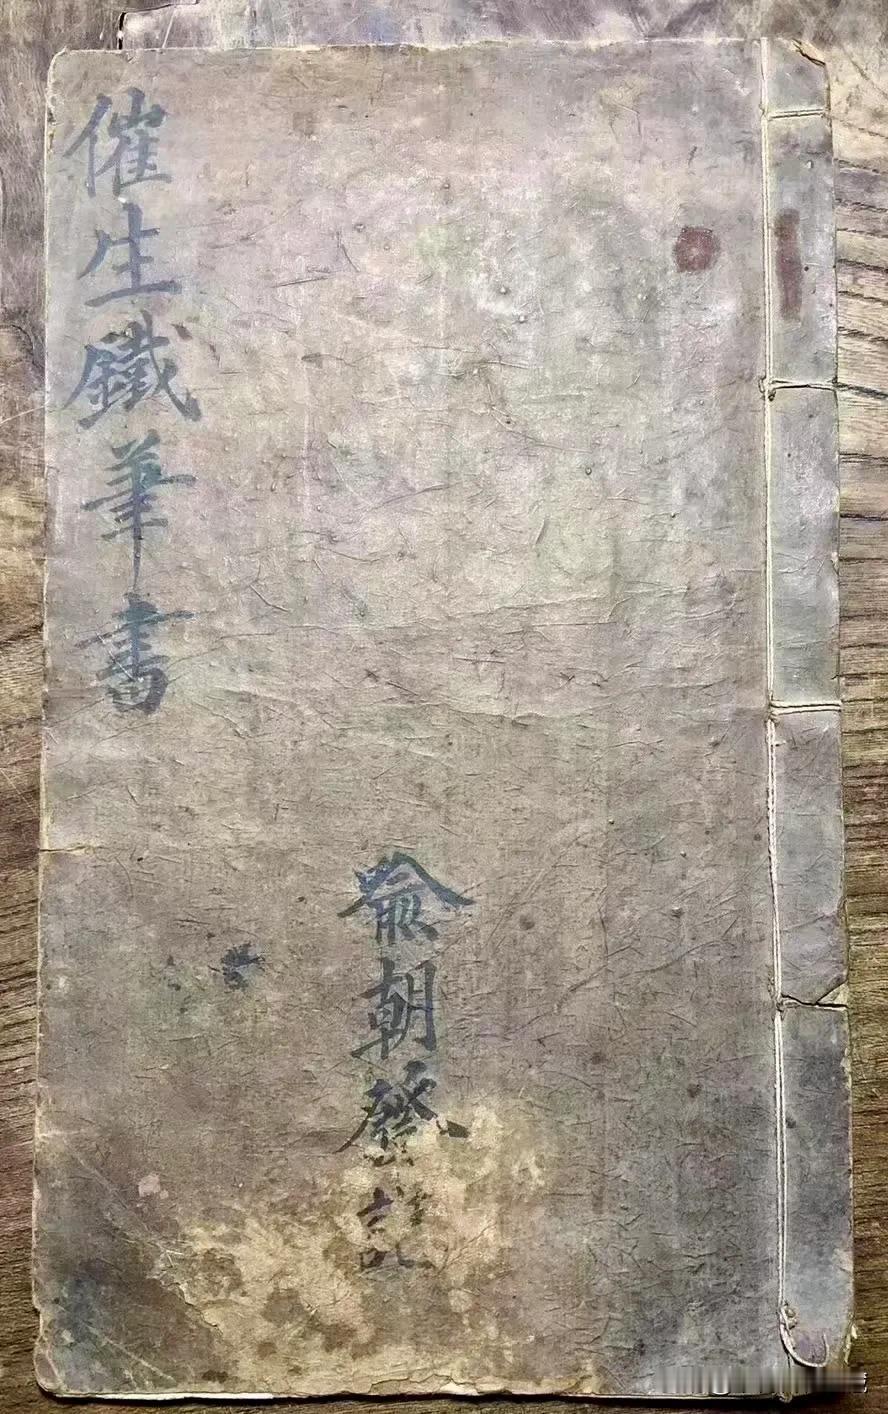 催生鐵筆書
俞朝發記